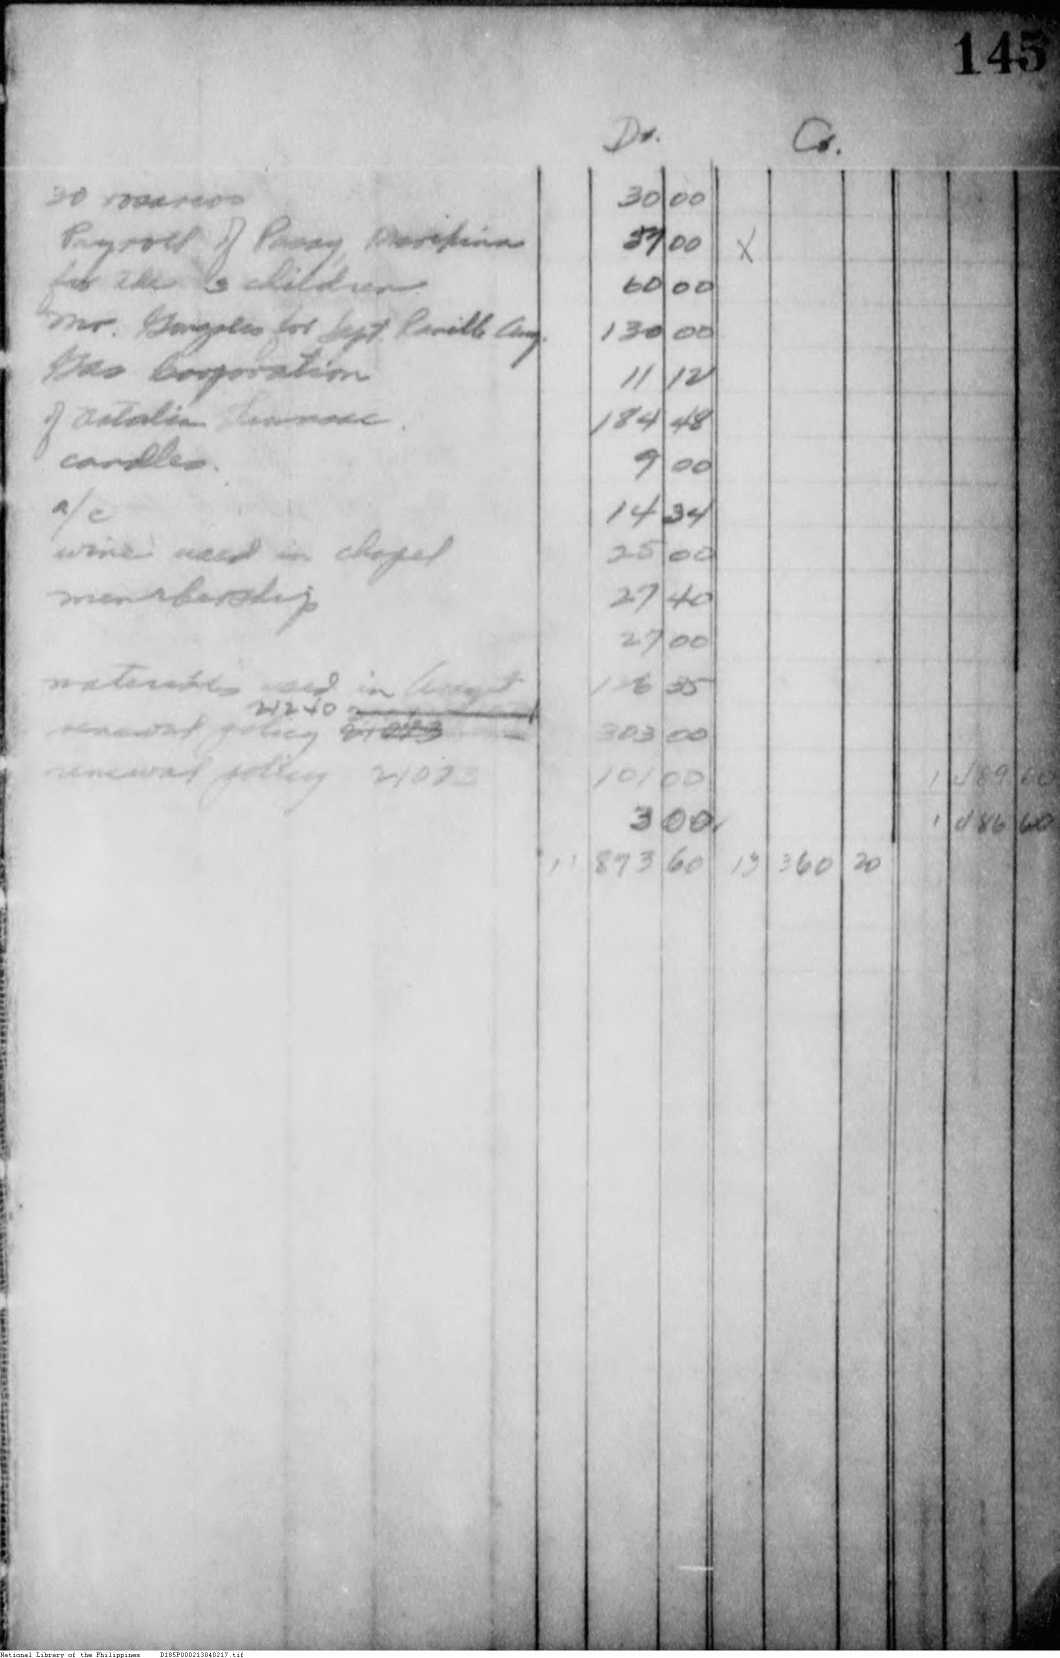 145
Dr. Cr.
30 rosarios 30 00
Payroll of Pasay, Marikina 37 00 X
for the 3 children 60 00
Mr. Gonzales for Sept. Aug. 130 00
Gas Corporation 11 12
of Natalia 184 48
candles. 9 00
a/c 14 34
wine used in chapel 25 00
membership 27 40
27 00
materials used in August 126 35
21240
renewal policy 21073 303 00
renewal policy 21073 101 00 1 489 00
3 00 1 486 60
11 873 60 13 360 20
National Library of the Philippines D185P000213040217.tif